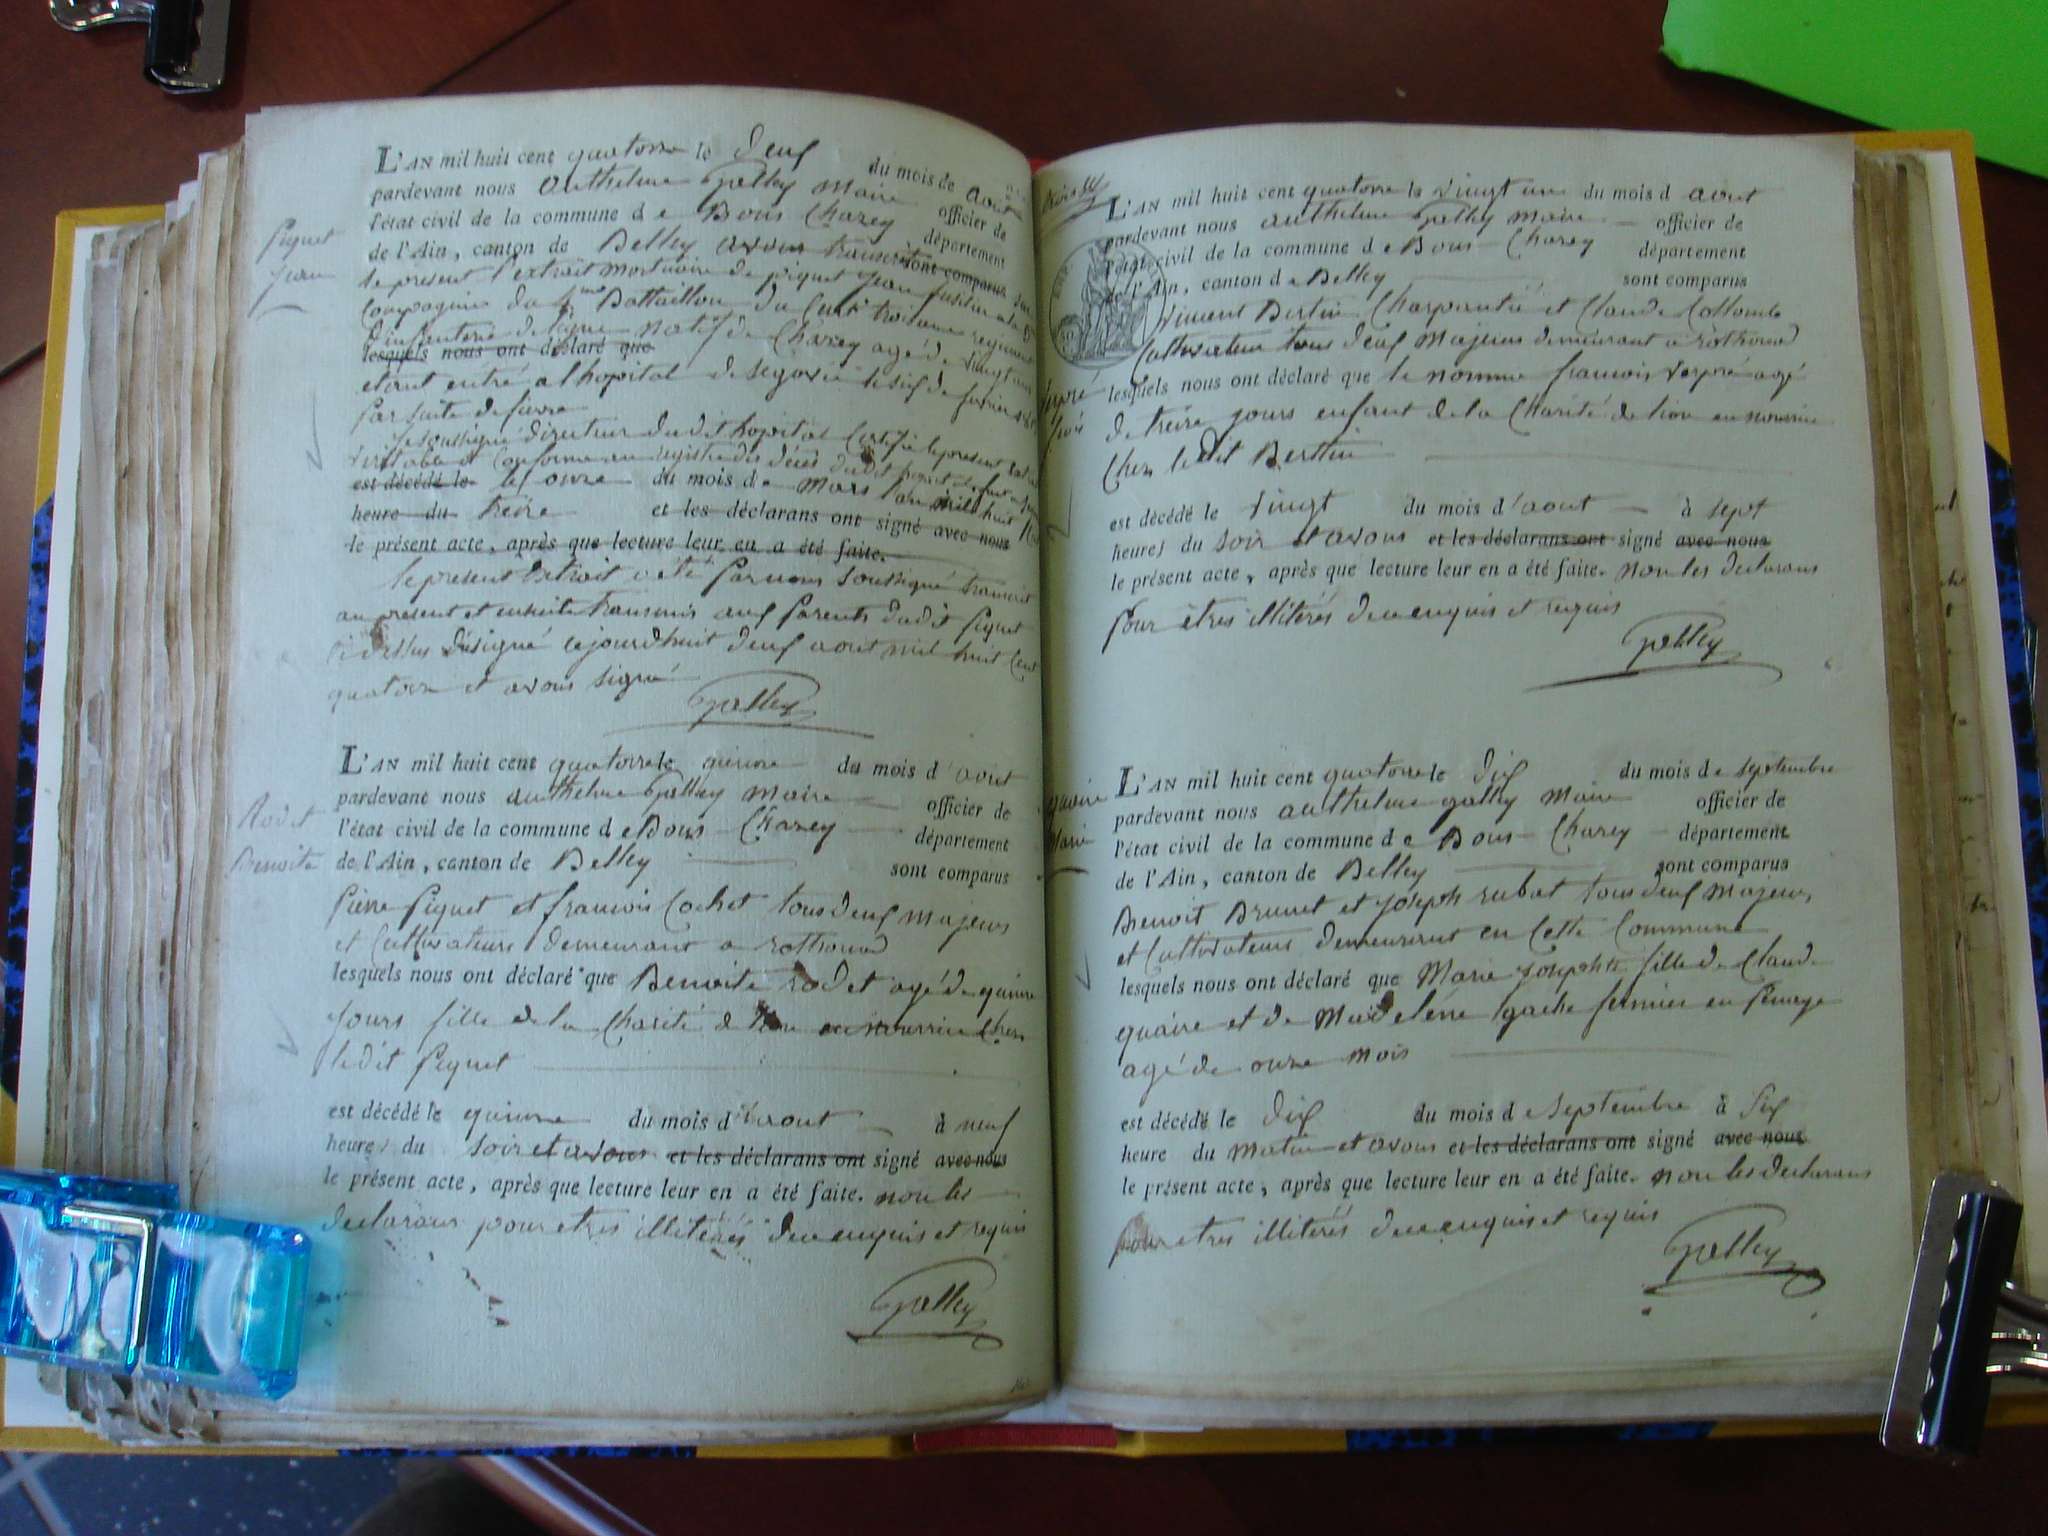 L'AN mil huit cent quatorze le deux du mois de aout
pardevant nous anthelme Galley maire officier de
l'état civil de la commune de Bons Chazey département
de l'Ain, canton de Belley avons transcrit sont comparus
le present l'extrait mortuaire de piquet jean fusilier a la
Compagnie du 4me Battaillon du Cent troisieme regiment
d'infanterie de ligne natif de Chazey agé de vingt un
lesquels nous ont déclaré que
etant entré a l'hopital de segovie le six de fevrier
par suite de fievre
je soussigné directeur dudit hopital Certifie le present
veritable et Conforme au registre des décés dudit hopital
est décédé le le onze du mois de Mars l'an mil huit
heure du treize et les déclarans ont signé avec nous
le présent acte, après que lecture leur en a été faite.
le present Extrait a eté par nous soussigné transcrit
au present et ensuite transmis aux parents dudit piquet
ci dessus désigné cejourdhuit deux aout mil huit Cent
quatorze et avons signé
Galley
Piquet
jean
L'AN mil huit cent quatorze le quinze du mois d'aout
pardevant nous anthelme Galley maire officier de
l'état civil de la commune de Bons Chazey département
de l'Ain, canton de Belley sont comparus
Pierre Piquet et francois Cochet tous deux majeurs
et Cultivateurs demeurant a rothonod
lesquels nous ont déclaré que Benoite rodet agé de quinze
jours fille de la Charité de lion en nourrice Chez
ledit Piquet
est décédé le quinze du mois d'aout à neuf
heures du soir et avons et les déclarans ont signé avec nous
le présent acte, après que lecture leur en a été faite. non les
declarans pour etres illitérés de ce enquis et requis
Galley
Rodet
Benoite
L'AN mil huit cent quatorze le vingt un du mois d aout
pardevant nous anthelme Galley maire officier de
l'état civil de la commune de Bons Chazey département
de l'Ain, canton de Belley sont comparus
Vincent Bertin Charpentié et Claude Collomb
Cultivateur tous deux majeurs demeurant a rothonod
lesquels nous ont déclaré que le nomme francois verpré agé
de treize jours enfant de la Charité de lion en nourrice
Chez ledit Berttin
est décédé le vingt du mois d'aout à sept
heures du soir et avons et les déclarans ont signé avec nous
le présent acte, après que lecture leur en a été faite. non les declarans
pour etres illitérés de ce enquis et requis
Galley
L'AN mil huit cent quatorze le dix du mois de septembre
pardevant nous anthelme galley maire officier de
l'état civil de la commune de Bons Chazey département
de l'Ain, canton de Belley sont comparus
Benoit Brunet et joseph rubat tous deux majeurs
et Cultivateurs demeurant en Cette Commune
lesquels nous ont déclaré que Marie josephte fille de Claude
quaire et de Madeléne gache fermier en
agé de onze mois
est décédé le dix du mois de septembre à six
heure du matin et avons et les déclarans ont signé avec nous
le présent acte, après que lecture leur en a été faite. non les declarans
pour etres illitérés de ce enquis et requis
Galley
quaire
Marie